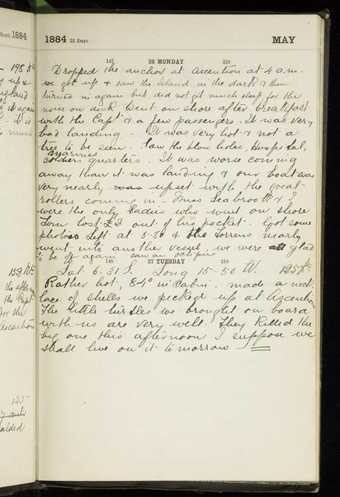 1884 31 Days MAY
147 26 MONDAY 219
Dropped the anchor at Ascention at 4 a.m.
we got up & saw the island in the dark & then
turned in again but did not get much sleep for the
noise on deck. Went on shore after breakfast
with the Capt & a few passengers. It was very
bad landing. It was very hot & not a
tree to be seen. Saw the blow holes,
marines
soldiers quarters. It was worse coming
away than it was landing & our boat was
very nearly was upset with the great
rollers coming in. Miss Seabrook & I
were the only ladies who went on shore
Tom lost £3 out of his pocket. Got some
photos Left at 5.30 & the Sorrento nearly
went into another vessel, we were all glad
to be off again saw an octopus
148 27 TUESDAY 218
Lat 6.31 S. Long 15-50 W. 125
Rather hot, 84° in cabin. made a neck
lace of shells we picked up at Ascention
The little turtles we brought on board
with us are very well. They killed the
big one this afternoon I suppose we
shall live on it tomorrow
1884